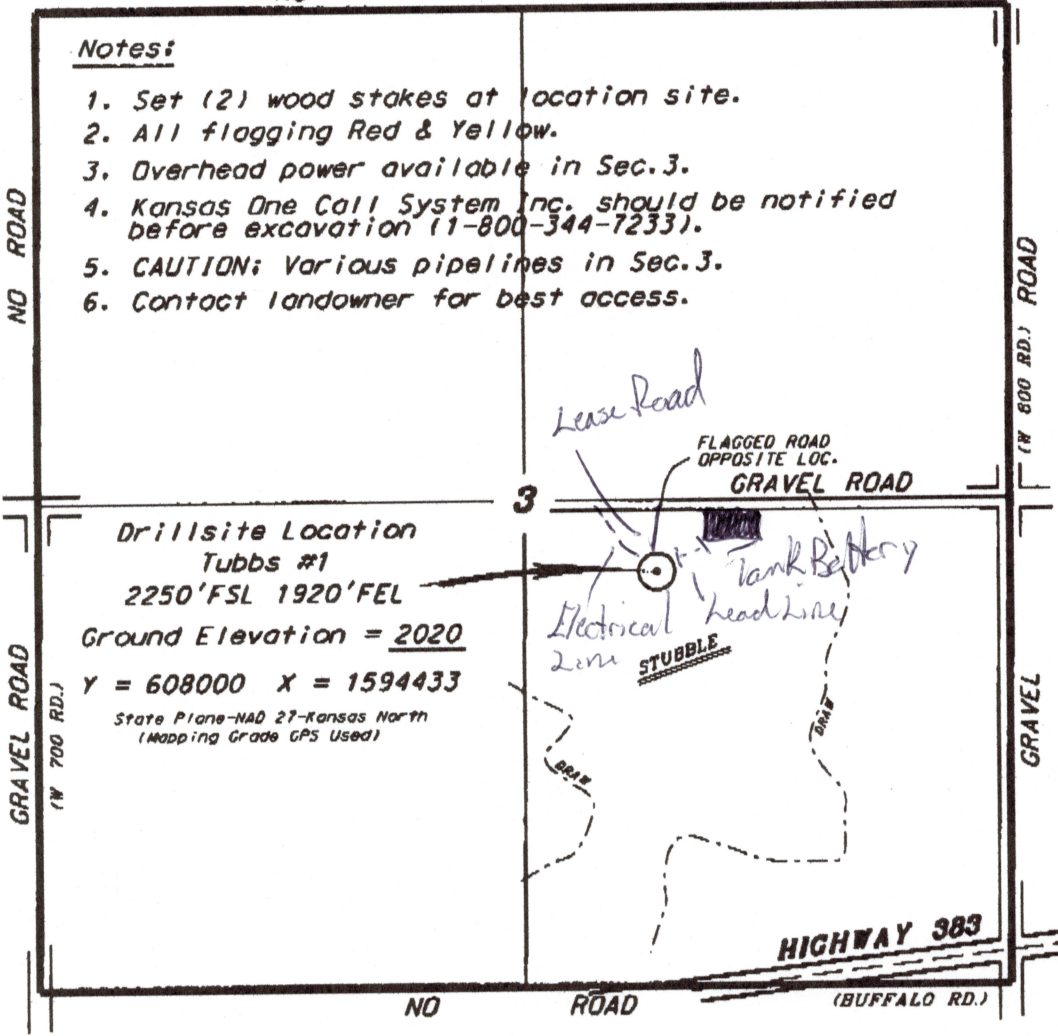 Notes:
1. Set (2) wood stakes at location site.
2. All flagging Red & Yellow.
3. Overhead power available in Sec.3.
4. Kansas One Call System Inc. should be notified
before excavation (1-800-344-7233).
5. CAUTION: Various pipelines in Sec.3.
6. Contact landowner for best access.
NO ROAD
(W 800 RD.) ROAD
Lease Road
FLAGGED ROAD
OPPOSITE LOC.
GRAVEL ROAD
3
Drillsite Location
Tubbs #1
2250'FSL 1920'FEL
Ground Elevation = 2020
Y = 608000 X = 1594433
State Plane-NAD 27-Kansas North
(Mapping Grade GPS Used)
Tank Battery
Lead Line
Electrical
Line
STUBBLE
DRAW
DRAW
GRAVEL ROAD
(W 700 RD.)
GRAVEL
HIGHWAY 383
NO ROAD
(BUFFALO RD.)